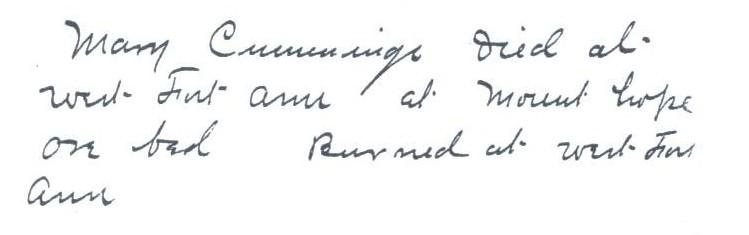 Mary Cummings Died at
west Fort Ann at Mount hope
ore bed Burned at west Fort
Ann